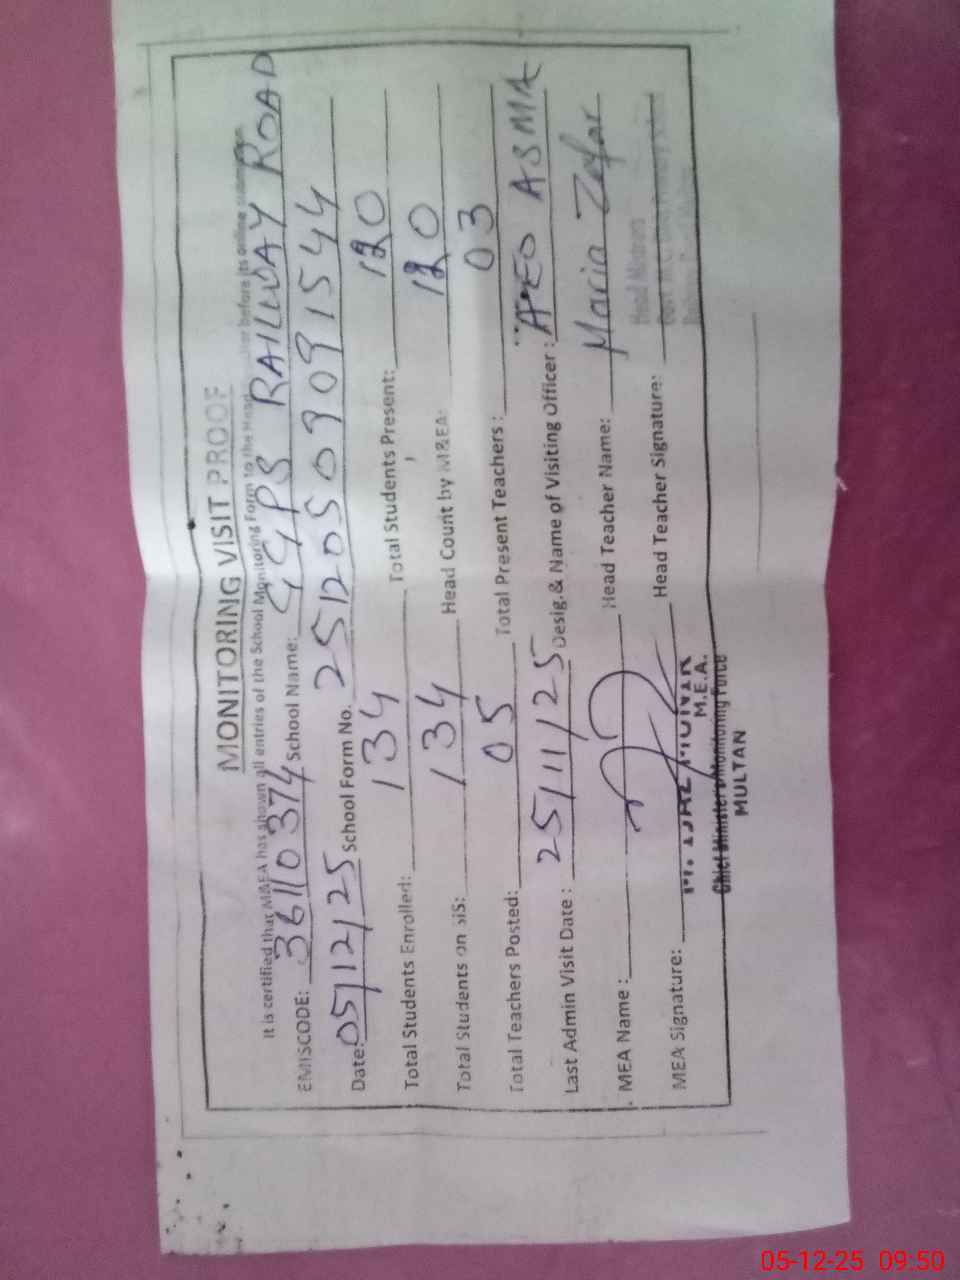 MONITORING VISIT PROOF
It is certified that M&EA has shown all entries of the School Monitoring Form to the Head before its online
EMISCODE: 36110374 School Name: GGPS RAILWAY ROAD
Date: 05/12/25 School Form No. 2512050909091544
Total Students Enrolled: 134 Total Students Present: 120
Total Students on SIS: 134 Head Count by M&EA: 120
Total Teachers Posted: 05 Total Present Teachers: 03
Last Admin Visit Date: 25/11/25 Desig.& Name of Visiting Officer: AEO ASMA
MEA Name: Head Teacher Name: Maria Zafar
MEA Signature: Head Teacher Signature:
Head Mistress
M.E.A.
Chief Minister's Monitoring Force
MULTAN
05-12-25 09:50